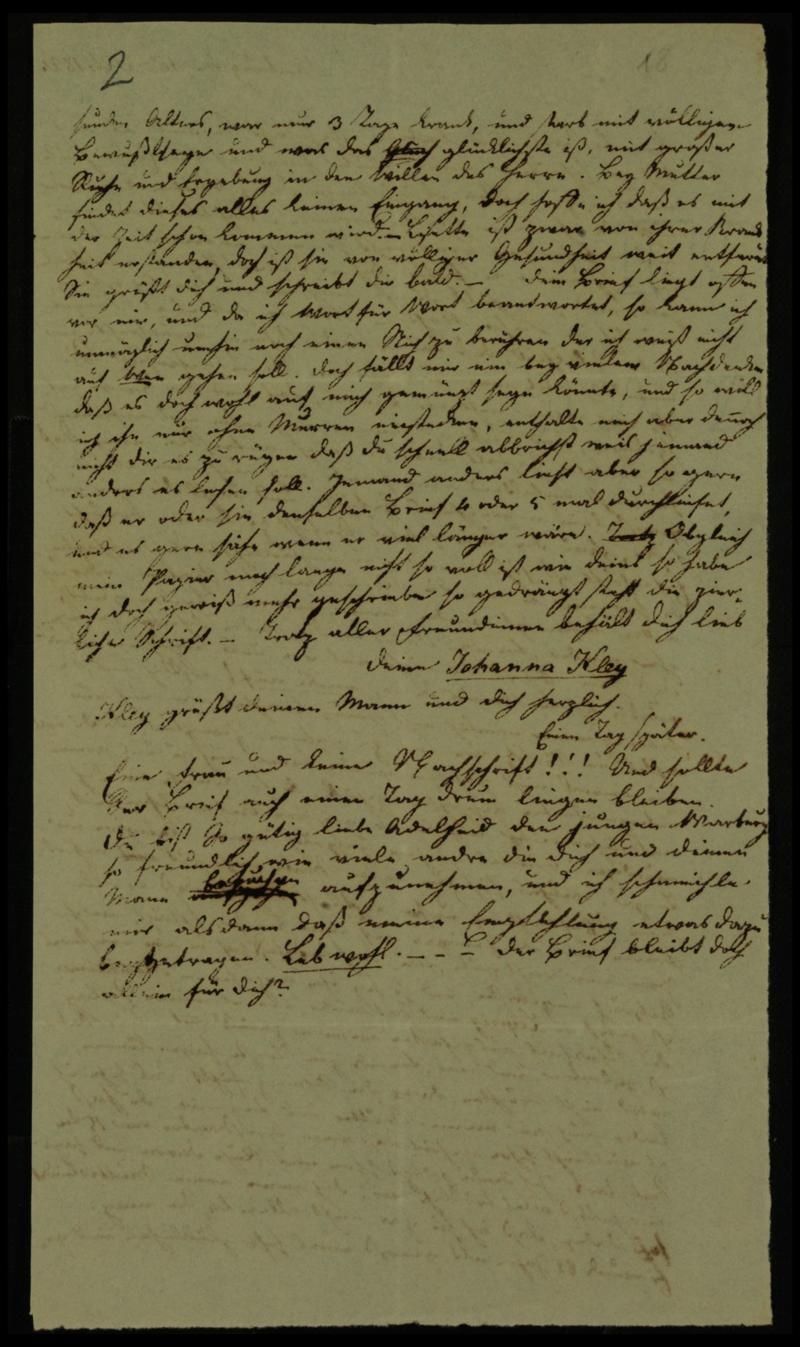 2
sunden Alters, war nur 3 Tage krank, und starb mit völligem
Bewußtseyn und was das glücklichste ist, mit großer
Ruhe und Ergebung in den Willen des Herrn. Bey Mutter
findet dieses alles keinen Eingang, doch hoffe ich daß es mit
der Zeit schon kommen wird. – Lisette ist zwar von ihrer Krank
heit erstanden, doch ist sie von völliger Gesundheit weit entfernt
Sie grüßt dich und schreibt dir bald. – Dein Brief liegt offen
vor mir, und da ich Wort für Wort beantwortet, so kann ich
unmöglich umhin noch einen Stich zu berühren der ich weiß nicht
auf wen gehen soll. Doch fällt mir ein bey vielem Nachdenken
daß es doch wohl auf mich gemünzt seyn könnte, und so will
ich ihn nur ohne Murren einstecken, enthalte mich aber dennoch
nicht dir es zu rügen daß du schnell abbrichst weil jemand
anders es lesen soll. Jemand anders liest aber so gern
daß er oder sie denselben Brief 4 oder 5 mal durchlieset,
und es gern sähe wenn er viel länger wäre. Trotz Obgleich
mein Papier noch lange nicht so voll ist wie deins so habe
ich doch gewiß mehr geschrieben so gedrängt steht die zier-
liche Schrift. – Trotz aller Freundinnen behält dich lieb
deine Johanna Kley
Kley grüßt deinen Mann und dich herzlich.
Einen Tag später.
Eine Frau und keine Nachschrift!!! Und sollte
der Brief auch einen Tag drum liegen bleiben.
Du bist so gütig liebe Adelheid den jungen Warburg
so freundlich wie viele andre die dich und deinen
Mann besuchen aufzunehmen, und ich schmeichle
mir alsdann daß meine Empfehlung etwas dazu
beygetragen. Leb wohl. – – – Der Brief bleibt doch
allein für dich?